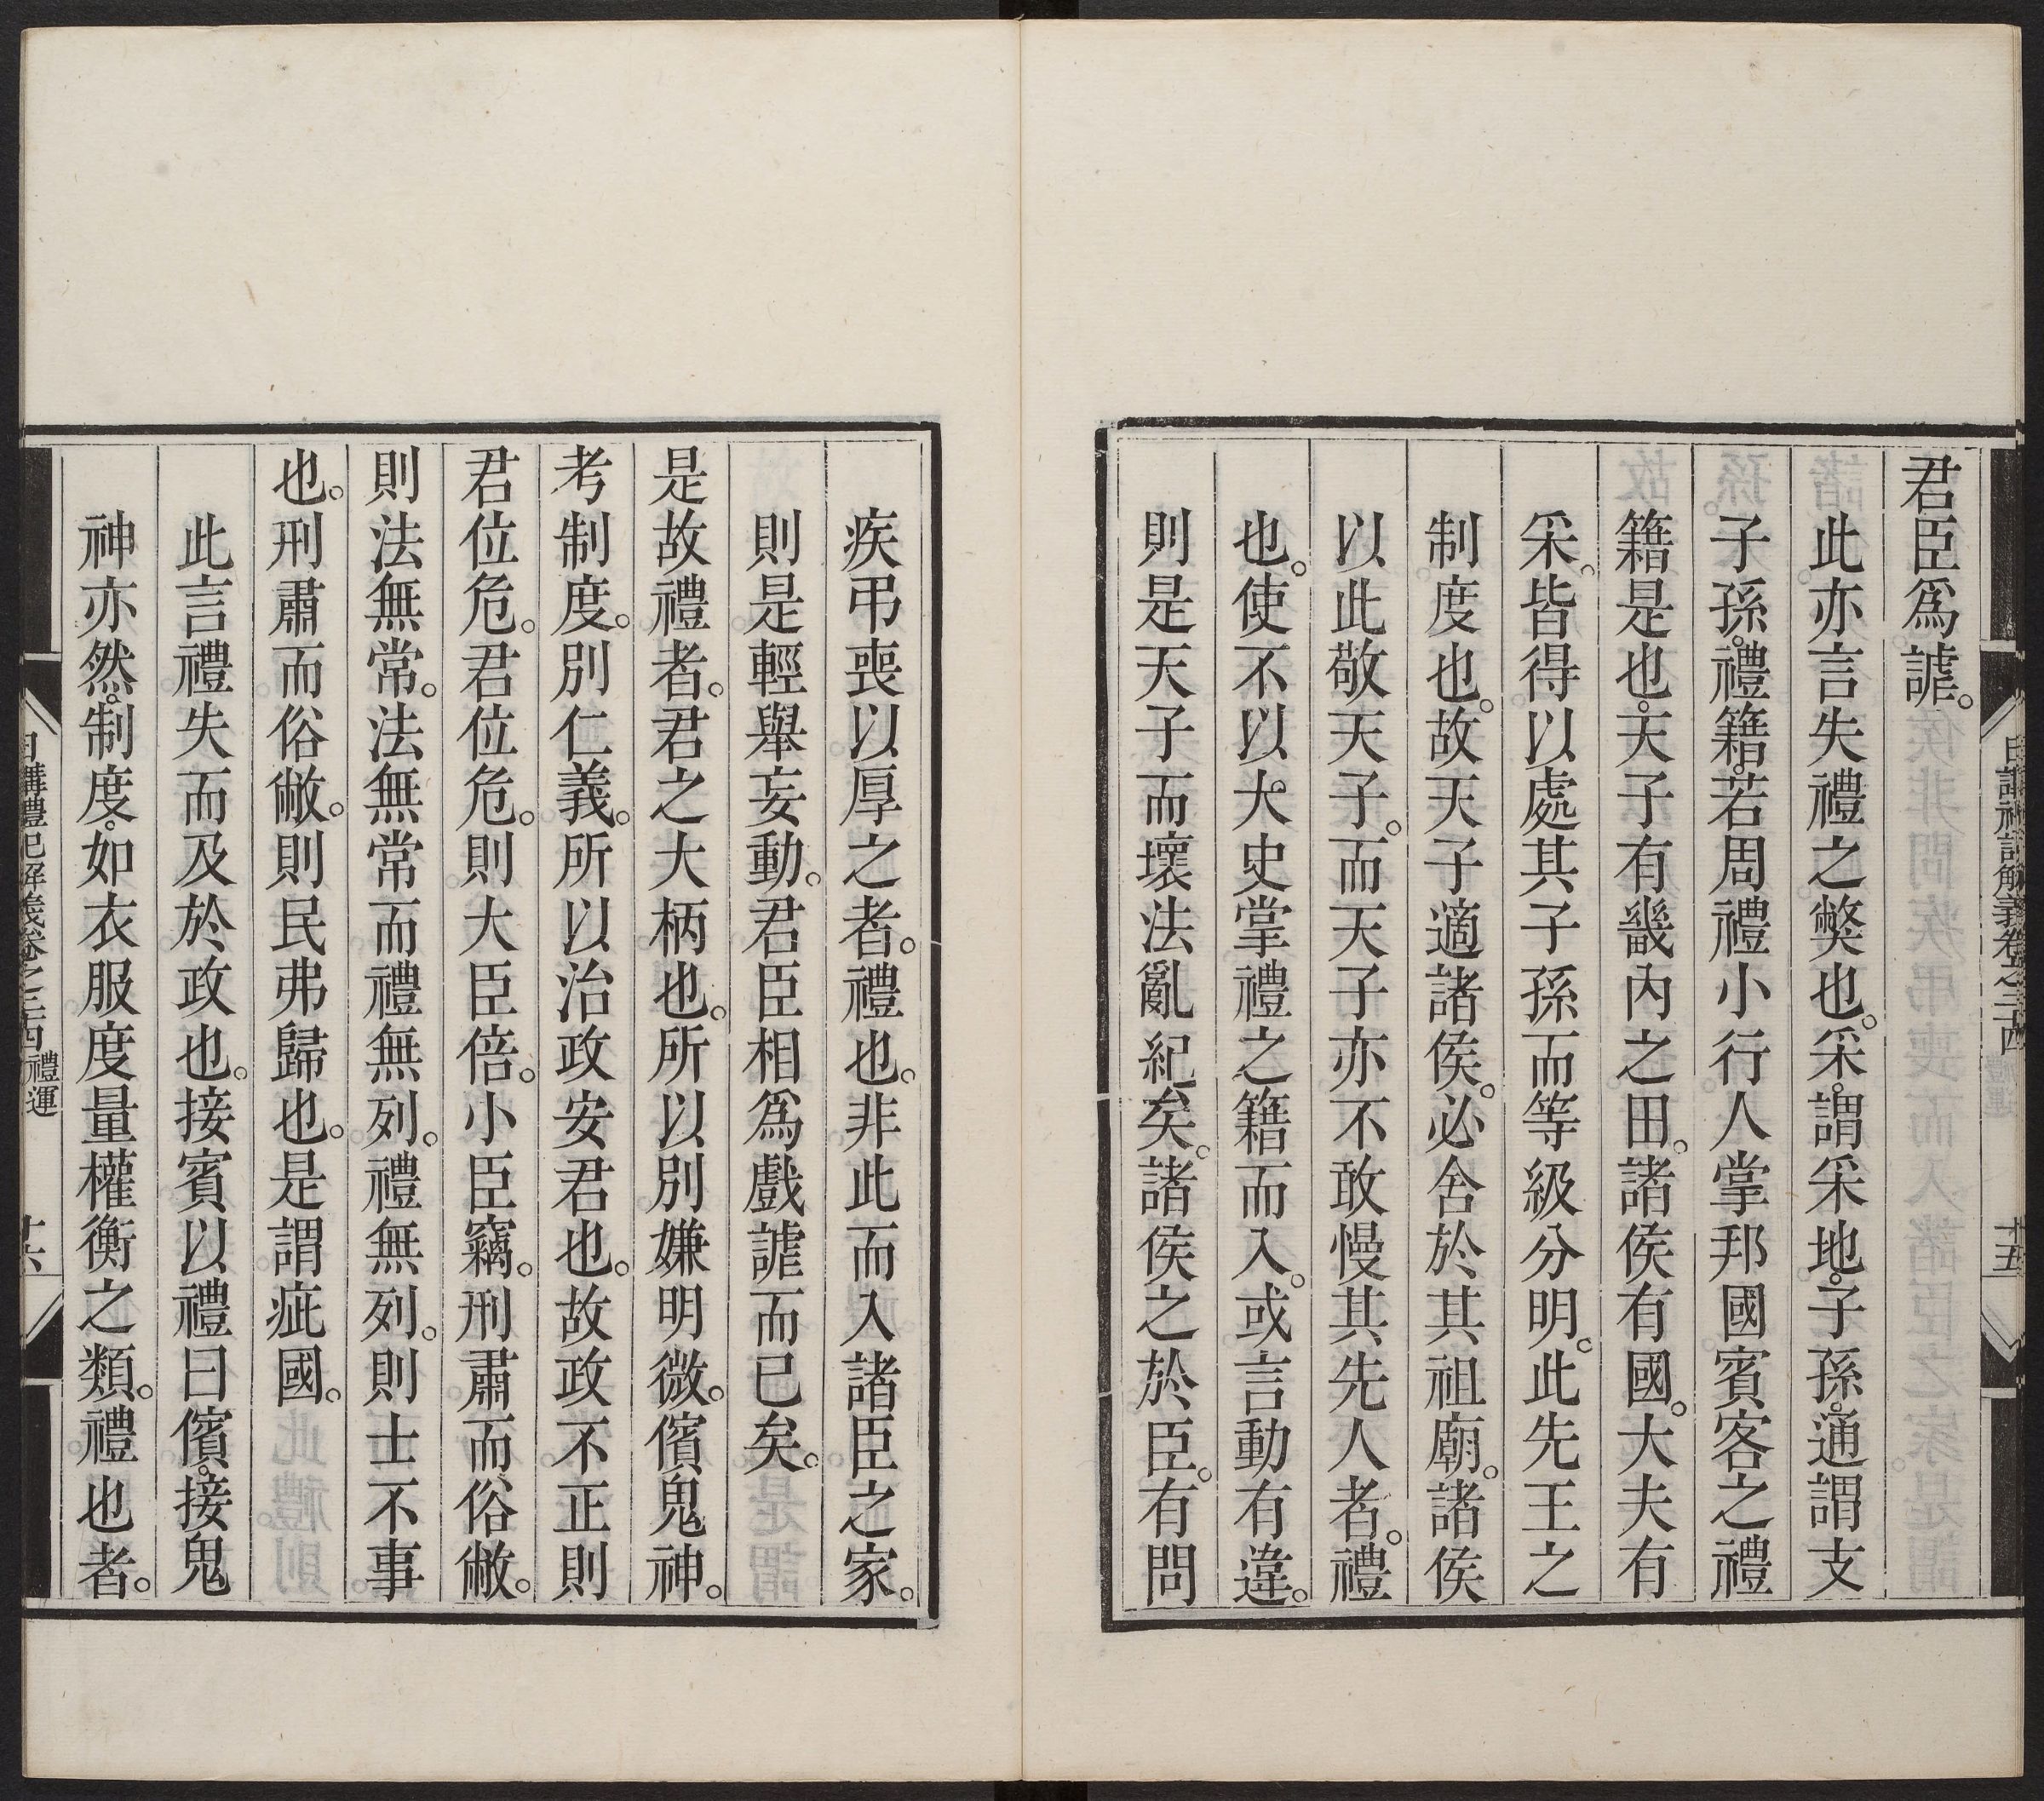 君臣爲謔。
此亦言失禮之獘也。采。謂采地。子孫。通謂支
子孫。禮籍。若周禮小行人掌邦國賓客之禮
籍是也。天子有畿內之田。諸侯有國。大夫有
采。皆得以處其子孫而等級分明。此先王之
制度也。故天子適諸侯。必舍於其祖廟。諸侯
以此敬天子。而天子亦不敢慢其先人者。禮
也。使不以大史掌禮之籍而入。或言動有違。
則是天子而壞法亂紀矣。諸侯之於臣。有問
日講禮記解義卷之三十四
十五
疾弔喪以厚之者。禮也。非此而入諸臣之家。
則是輕舉妄動。君臣相爲戲謔而已矣。
是故禮者。君之大柄也。所以別嫌明微。儐鬼神。
考制度。別仁義。所以治政安君也。故政不正則
君位危。君位危。則大臣倍。小臣竊。刑肅而俗敝。
則法無常。法無常而禮無列。禮無列。則士不事
也。刑肅而俗敝。則民弗歸也。是謂疵國。
此言禮失而及於政也。接賓以禮曰儐。接鬼
神亦然。制度。如衣服度量權衡之類。禮也者。
日講禮記解義卷之三十四 禮運
十六